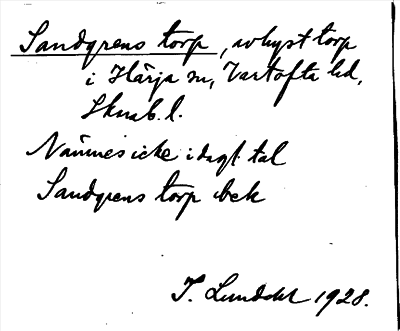 Sandgrens torp, avhyst torp
i Härja sn, Vartofta hd,
Skarab. l.
Nämnes icke i dagl. tal
Sandgrens torp bek
T. Lunddal 1928.